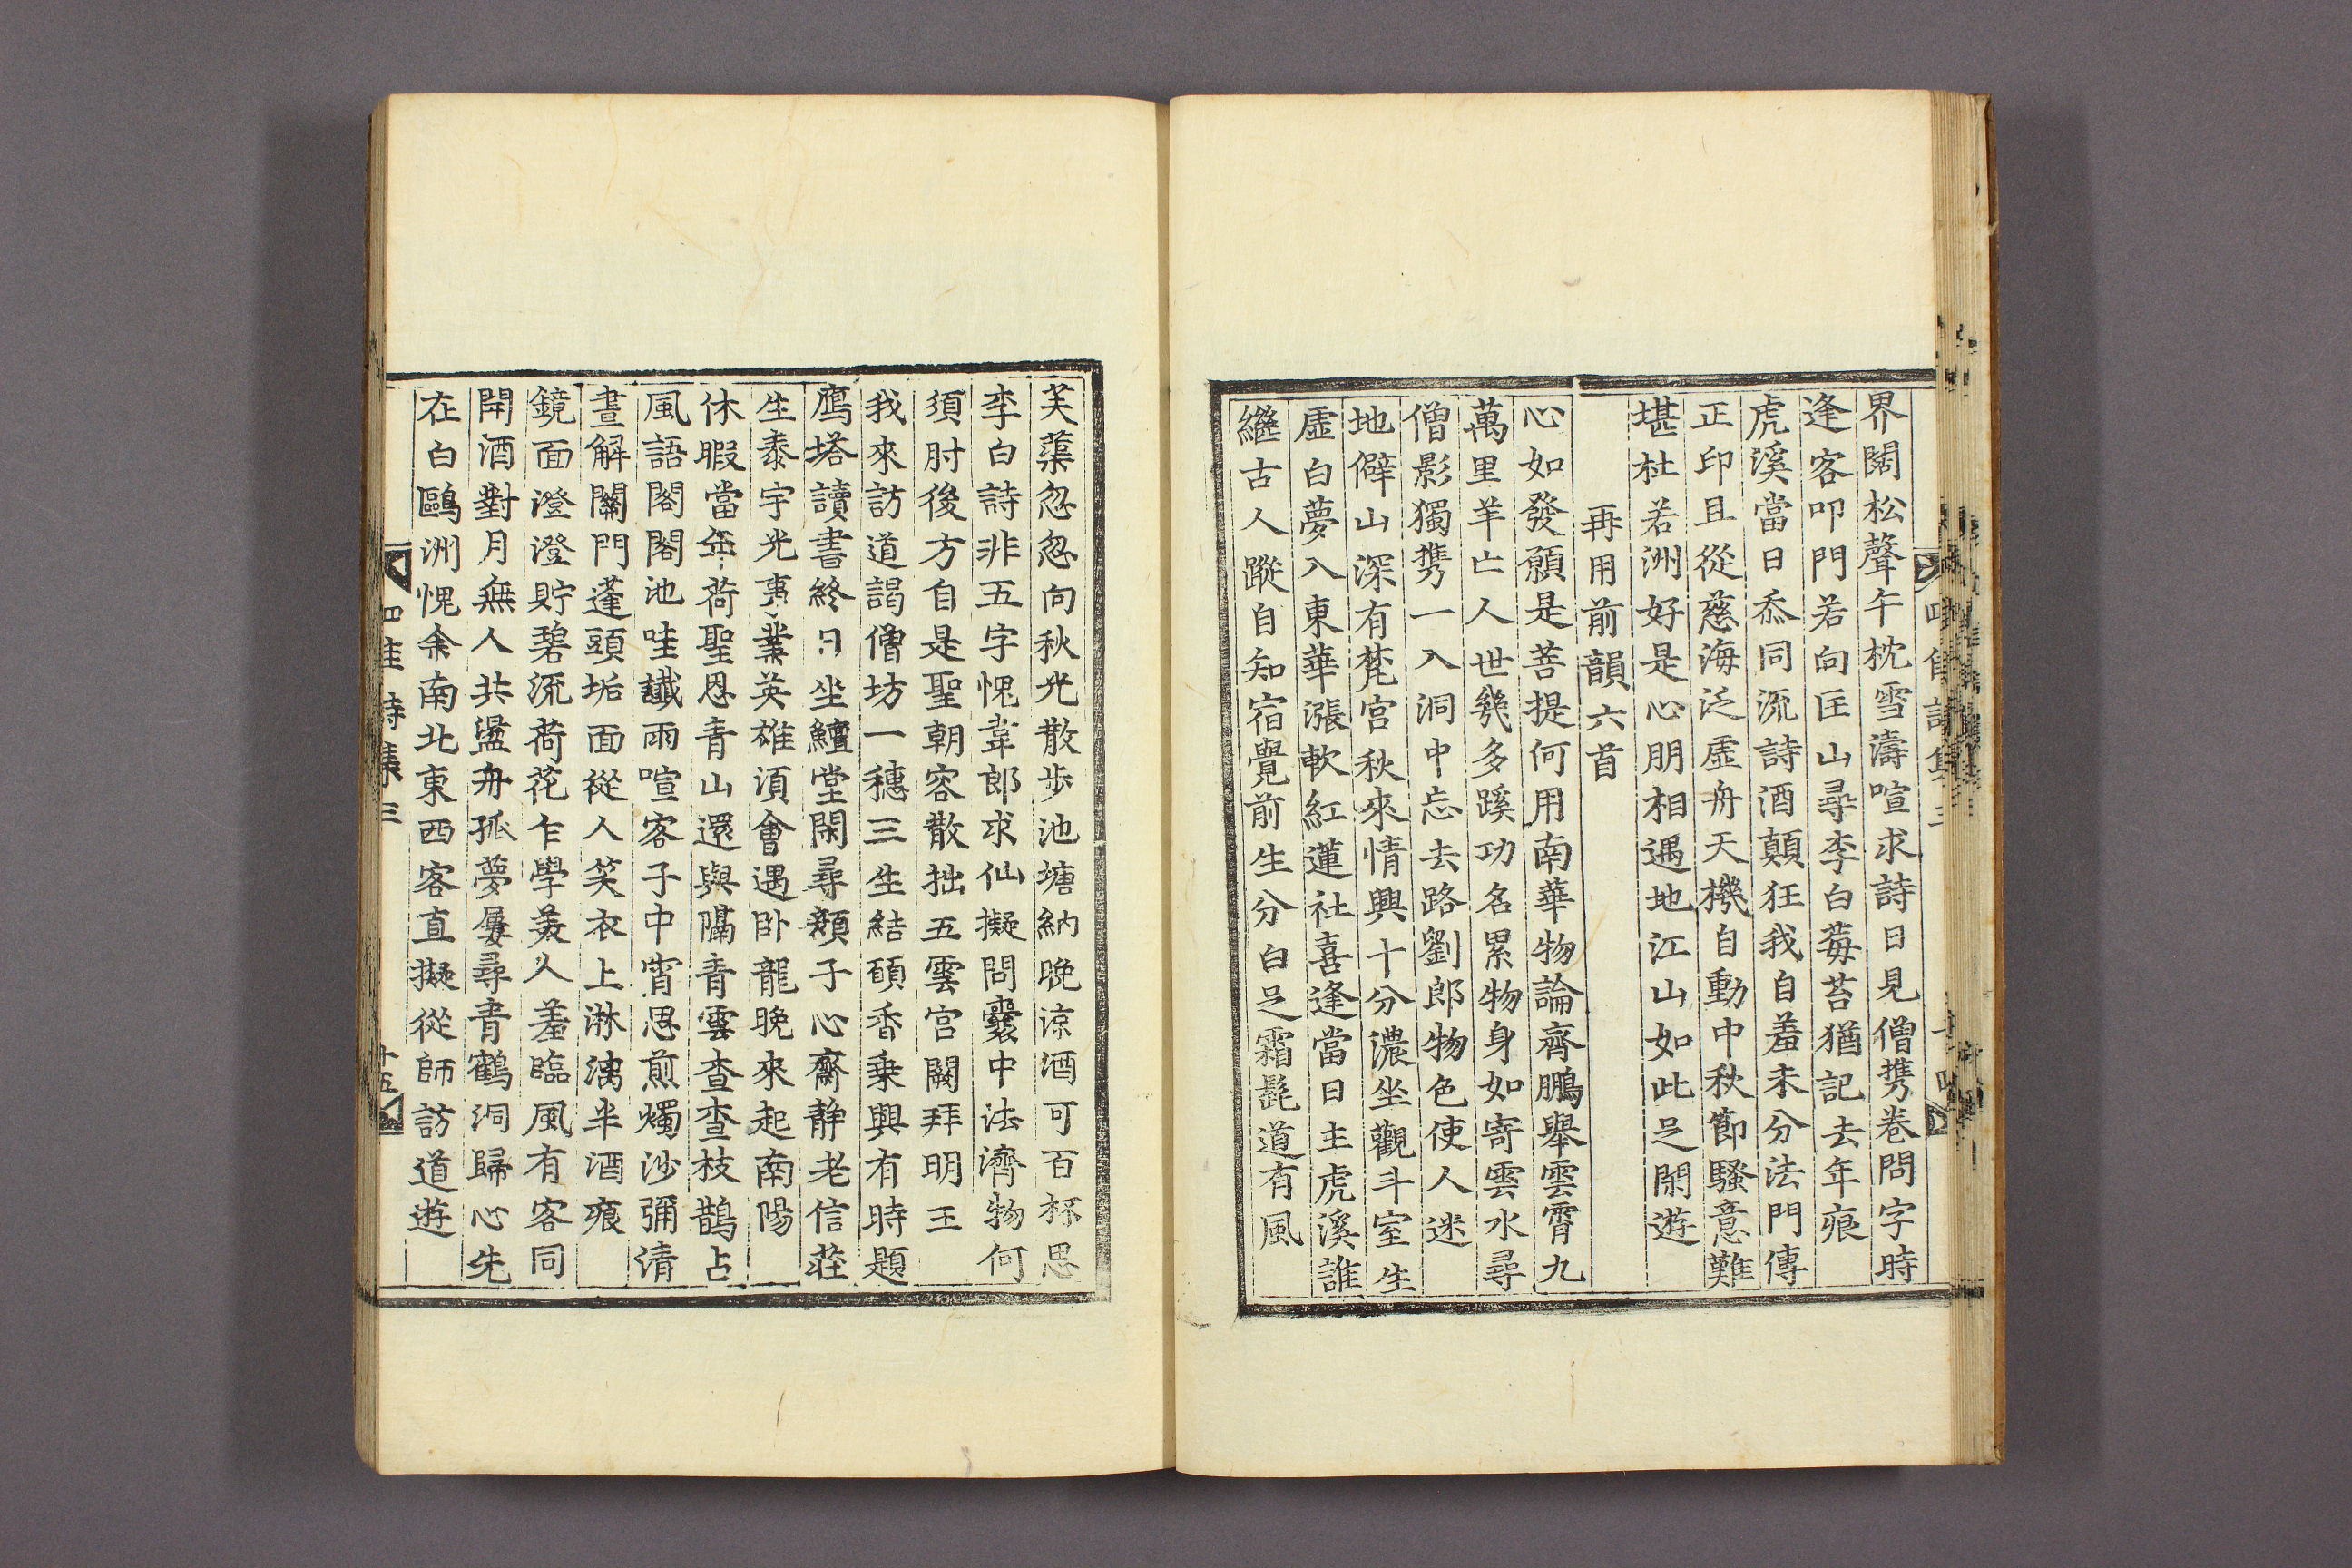 界闊松聲午枕雪濤喧求詩日見僧携卷問字時
逢客叩門若向匡山尋李白莓苔猶記去年痕
虎溪當日忝同流詩酒顛狂我自羞未分法門傳
正印且從慈海泛虛舟天機自動中秋節騷意難
堪杜若洲好是心朋相遇地江山如此足閑遊
再用前韻六首
心如發願是菩提何用南華物論齊鵬舉雲霄九
萬里羊亡人世幾多蹊功名累物身如寄雲水尋
僧影獨携一入洞中忘去路劉郎物色使人迷
地僻山深有梵宮秋來情興十分濃坐觀斗室生
虛白夢入東華漲軟紅蓮社喜逢當日主虎溪誰
繼古人蹤自知宿覺前生分白足霜髭道有風
芙蕖忽忽向秋光散步池塘納晚凉酒可百杯思
李白詩非五字愧韋郎求仙擬問囊中法濟物何
須肘後方自是聖朝容散拙五雲宮闕拜明王
我來訪道謁僧坊一穗三生結願香乗興有時題
鴈塔讀書終日坐鱣堂閑尋顏子心齋静老信莊
生泰宇光事業英雄湏會遇卧龍晚來起南陽
休暇當年荷聖恩青山還與隔青雲查查枝鵲占
風語閣閣池哇讖雨喧客子中宵思煎燭沙彌清
晝解關門蓬頭垢面從人笑衣上淋漓半酒痕
鏡面澄澄貯碧流荷花乍學美人羞臨風有客同
開酒對月無人共盪舟孤夢屢尋青鶴洞歸心先
在白鷗洲愧余南北東西客直擬從師訪道遊
四佳詩集三
十五